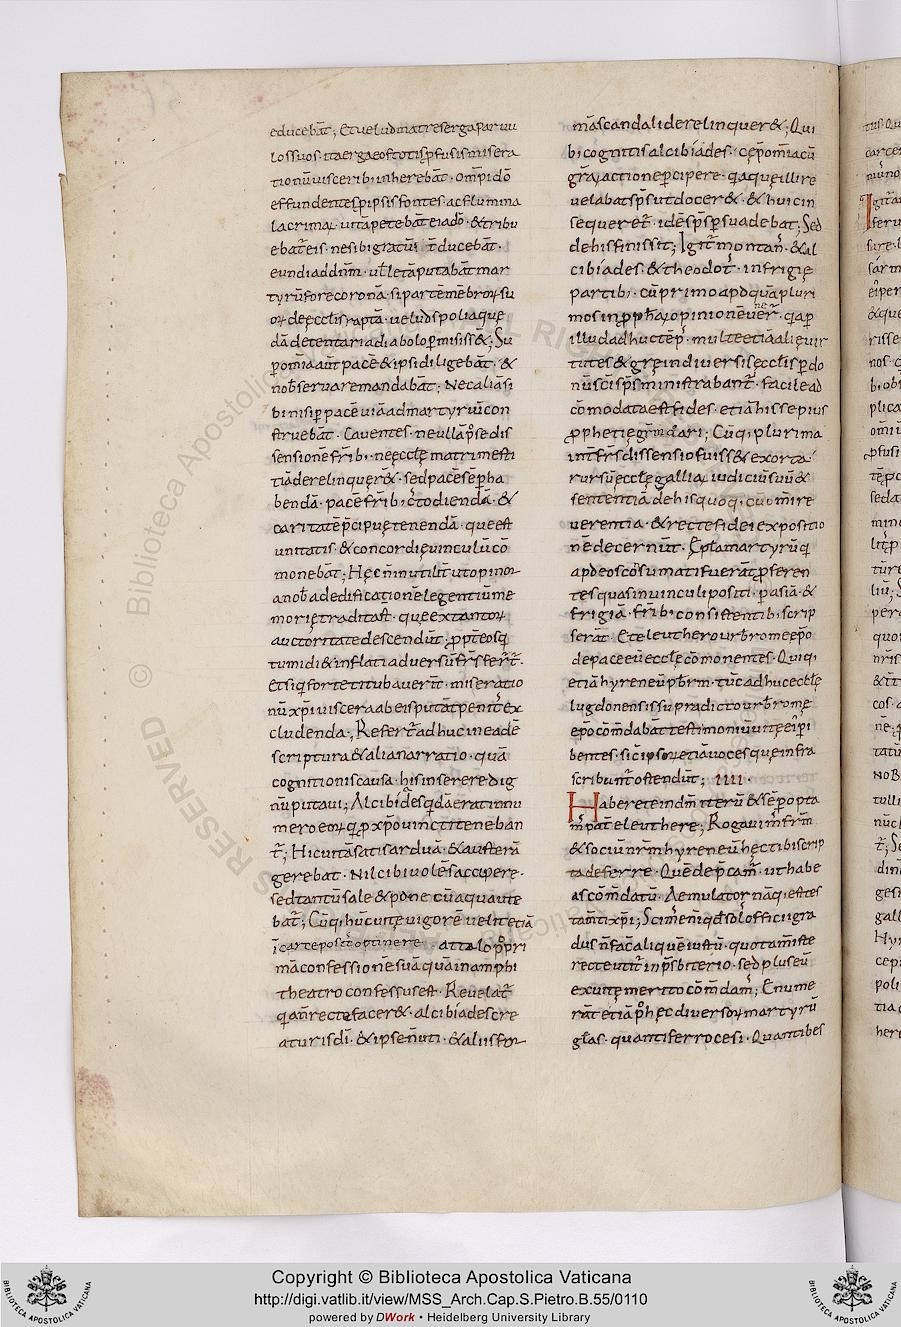 educebāt; Et uelud matres erga paruu
los suos. ita erga eos totis p̄fusis misera
tionū uisceribˌ inherebāt. om̄ipidō
effundentes p̄ ipsis fontes. ac flumina
lacrimaꝝ. uitā petebāt eia dō. & tribu
ebat̄ eis. ne sibi gratūi t̄ ducebāt.
eundi ad dn̄m. ut̄ letā putabāt mar
tyrū fore coronā. si partē mēbroꝝ su
oꝝ de ęccl̄is raptā. uelud spolia quę
dā detentari a diabolo p̄misiss&; Su
p om̄ia aut̄ pacē & ipsi diligebāt. &
nob̄ seruare mandabāt; Nec aliā si
bi nisi p̄ pacē uiā ad martyrū con
struebāt. Cauentes. ne ulla p̊ se dis
sensione fr̄ibˌ. ne ęccl̄ę matri mesti
tiā derelinquer&. sed pacē sēp̄ ha
bendā. pacē fr̄ibˌ c̄todiendā. &
caritatē p̄cipuę tenendā. que est
unitatis. & concordię uinculū cō
monebāt; Hęc n̄ inutilit̄ ut opinoꝛ
a nob̄ ad edificationē legentiū me
morię tradita st̄. que ex tantoꝝ
auctoritate descendūt. p̄pt̄ eosq̄
tumidi & inflati aduersū fr̄s fer̄t̄.
Et siq̄ forte titubauer̄t. miseratio
nū xp̄i uiscera ab eis putāt penit̄ ex
cludenda; Refert̄ adhuc in eadē
scriptura & alia narratio. quā
cognitionis causa. his inserere dig
nū putaui; Alcibiades q̄dā erat innu
mero eoꝝ q̄ p̄ xp̄o uincti teneban
t̄; Hic uitā satis arduā. & austerā
gerebat. Nil cibi uolēs accipere.
sed tantū sale & pane cū aqua ute
bat̄; Cūq̄ˌ hūc uitę uigorē uell& etiā
ī carcere posit̄ optinere. attalo p̊ pri
mā confessionē suā quā in amphi
theatro confessus est. Reuelat̄
q̄a n̄ recte facer&. alcibiades cre
aturis dī. & ipse n̄ uti. & aliis foꝛ
mā scandali derelinquer&; Qui
bˌ cognitis alcibiades. cępom̄ia cū
grāꝝ actione p̄cipere. q̄a quę illi re
uelabat sp̄s ut docer&. & huic in
sequeret̄. idē sp̄s p̄suadebat; Sed
de his finis sit; Igit̄ montan̄. & al
cibiades. & theodot̄. in frigię
partibˌ. cū primo apd quā pluri
mos in p̄ph̄aꝝ opinionē uener̄. q̄a p̄
illud adhuc tēp̄. multe etiā alię uir
tutes & grę in diuersis ęccl̄is p̄ do
nū sc̄i sp̄s ministrabant̄. facile ad
cōmodata est fides. etiā his se pius
p̄phetię grām dari; Cūq̄ˌ plurima
int̄ fr̄s dissensio fuiss& exorta.
rursū ęccl̄ę galliaꝝ iudiciū suū &
sententiā de hisquoq̄ˌ cū om̄i re
uerentia. & recte fidei expositio
nē decernūt. Epl̄a martyrū q̄
apd eos cōsumati fuerāt p̄feren
tes quas in uinculi positi. p̄ asiā. &
frigiā. fr̄ibˌ. consistentibˌ. scrip
serāt. Et eleuthero urb̄ rome ep̄o
de pace eū ęccl̄ę cōmonentes. Qui q̄ˌ
etiā hyreneū p̄brm. tūc adhuc eccl̄ę
lugdonensis supradicto urb̄ rome
ep̄o cōmdabāt testimoniū uitę ei p̄i
bentes. sic̄ ipsoꝝ etiā uoces que infra
scribunt̄ ostendūt; IIII.
Habere te in dn̄o iterū & sēp̄ opta
m̄ pat̄ eleuthere; Rogauim̄ fr̄m
& sociū nrm̄ hyreneū hęc tibi scrip
ta deferre. Quē dep̄cam̄. ut habe
as cōmdatū. Aemulator nāq̄ˌ est tes
tam̄t xp̄i; Scim̄ eni q̄d sol officii gra
dus n̄ facit aliquē iustū. quo tam̄ iste
recte utit̄ in p̄sbiterio. sed plus eū
ex uitę merito cōmdam̄; Enume
rāt etiā p̊ hęc diuersoꝝ martyrū
gl̄as. quanti ferro cesi. Quanti bes
Copyright © Biblioteca Apostolica Vaticana
http://digi.vatlib.it/view/MSS_Arch.Cap.S.Pietro.B.55/0110
powered by DWork • Heidelberg University Library